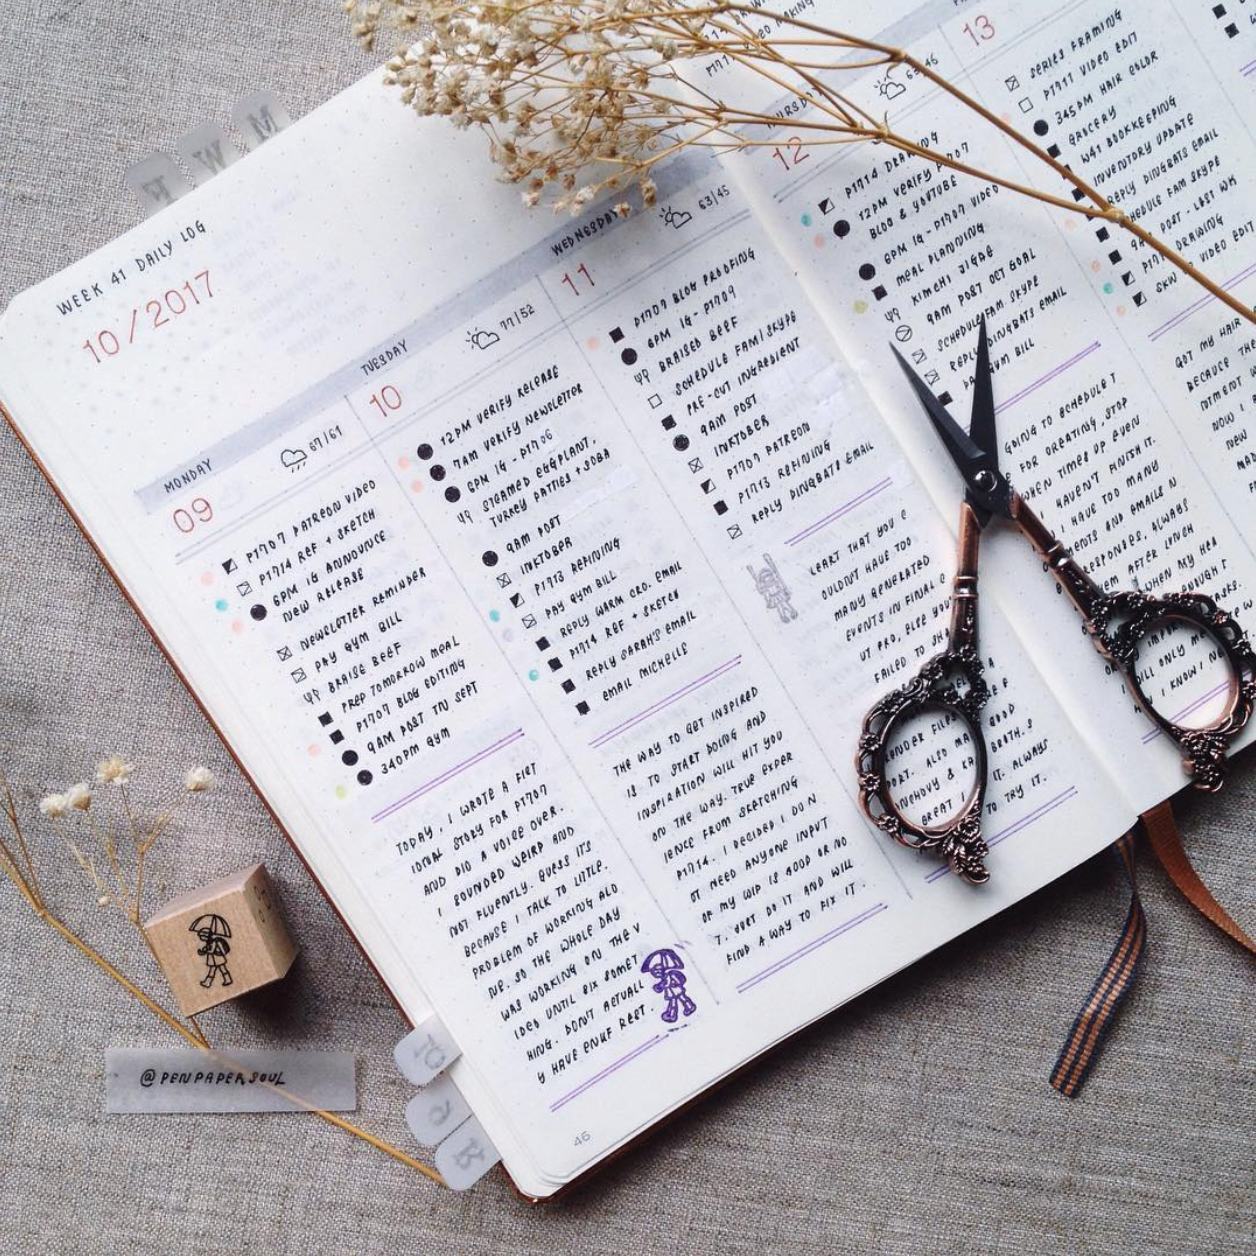 WEEK 41 DAILY LOG
10/2017
MONDAY
09
67/61
P1707 PATREON VIDEO
P1714 REF + SKETCH
6PM IG ANNOUNCE
NEW RELEASE
NEWSLETTER REMINDER
PAY GYM BILL
BRAISE BEEF
PREP TOMORROW MEAL
P1707 BLOG EDITING
9AM POST TN SEPT
340PM GYM
TODAY, I WROTE A FICT
IONAL STORY FOR P1707
AND DID A VOICE OVER.
I SOUNDED WEIRD AND
NOT FLUENTLY. GUESS IT'S
BECAUSE I TALK TO LITTLE.
PROBLEM OF WORKING ALO
NE. SO THE WHOLE DAY
WAS WORKING ON THE V
IDEO UNTIL SIX SOMET
HING. DON'T ACTUALL
Y HAVE ENUF REST.
TUESDAY
10
77/52
12PM VERIFY RELEASE
7AM VERIFY NEWSLETTER
6PM IG - P1706
STEAMED EGGPLANT,
TURKEY PATTIES + SOBA
9AM POST
INKTOBER
P1713 REFINING
PAY GYM BILL
REPLY WARM ORD. EMAIL
P1714 REF + SKETCH
REPLY SARAH'S EMAIL
EMAIL MICHELLE
THE WAY TO GET INSPIRED
IS TO START DOING AND
INSPIRATION WILL HIT YOU
ON THE WAY. TRUE EXPER
IENCE FROM SKETCHING
P1714. I DECIDED I DO N
OT NEED ANYONE INPUT
IF MY WIP IS GOOD OR NO
T. JUST DO IT AND WILL
FIND A WAY TO FIX IT.
WEDNESDAY
11
63/45
P1707 BLOG PROOFING
6PM IG - P1709
BRAISED BEEF
SCHEDULE FAM/SKYPE
PRE-CUT INGREDIENT
9AM POST
INKTOBER
P1707 PATREON
P1713 REFINING
REPLY DINGBATS EMAIL
LEART THAT YOU
OULDN'T HAVE TOO
MANY GENERATED
EVENTS IN FINAL
UT PRO, ELSE YOU
FAILED TO
GOOD
ALSO
BROTH.
IT. ALWAYS
GREAT TO TRY IT.
THURSDAY
12
63/46
P1714 DRAWING
12PM VERIFY P1707
BLOG & YOUTUBE
6PM IG - P1707 VIDEO
MEAL PLANNING
KIMCHI JIGAE
9AM POST OCT GOAL
SCHEDULE FAM SKYPE
REPLY DINGBATS EMAIL
GYM BILL
GOING TO SCHEDULE T
FOR CREATING, STOP
WHEN TIMES UP EVEN
I HAVEN'T FINISH IT.
I HAVE TOO MANY
AND EMAILS N
ALWAYS
AFTER LUNCH
WHEN MY HEA
ONLY
I KNOW I
13
SERIES FRAMING
P1717 VIDEO EDIT
345PM HAIR COLOR
GROCERY
W41 BOOKKEEPING
INVENTORY UPDATE
REPLY DINGBATS EMAIL
SCHEDULE FAM SKYPE
9AM POST - LAST WK
DRAWING
VIDEO EDIT
GOT MY HAIR
BECAUSE THE
NOW I
46
@PENPAPERSOUL